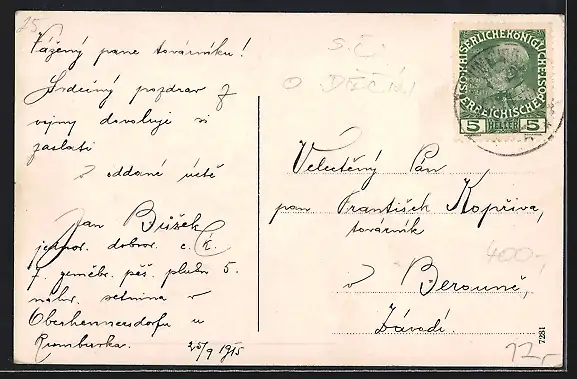 25
Vážený pane továrníku!
Srdečný pozdrav z
vojny dovoluji si
zaslati
v oddané úctě
Jan Bůžek
jednor. dobrov. c. k.
7. zeměbr. pěš. pluku 5.
náhr. setnina v
Oberhennersdorfu u
Rumburka. 25/9 1915
S. Č.
O DĚČÍN
Velectěný Pán
pan František Kopřiva,
továrník
v Berouně,
Závodí.
KAISERLICHE KÖNIGLICHE ÖSTERREICHISCHE POST
5 HELLER 5
400,-
7281